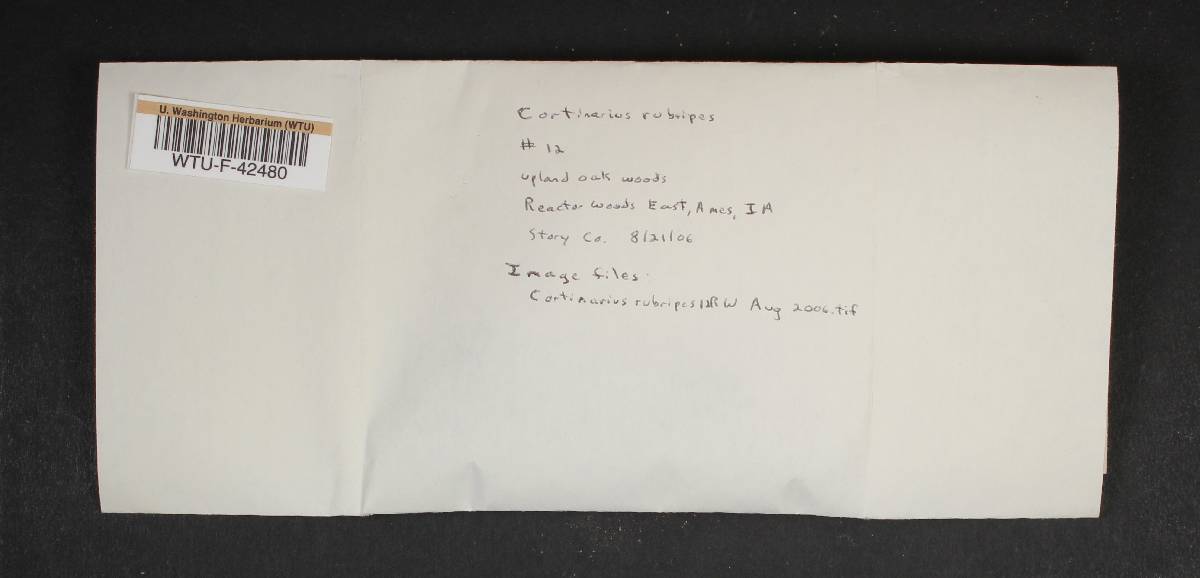 U. Washington Herbarium (WTU)
WTU-F-42480
Cortinarius rubripes
# 12
upland oak woods
Reactor woods East, Ames, IA
Story Co. 8/21/06
Image files:
Cortinarius rubripes12RW Aug 2006.tif